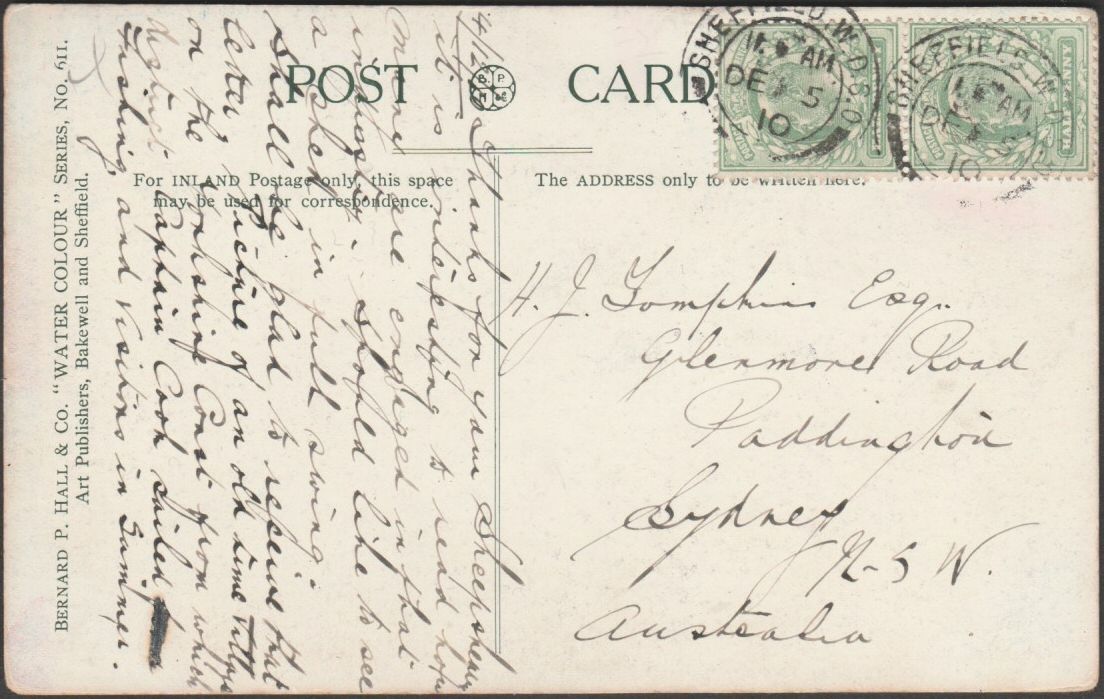 POST CARD
For INLAND Postage only, this space
may be used for correspondence.
The ADDRESS only to be written here.
SHEFFIELD. W.D.S.O
AM
DE 5
10
SHEFFIELD. W.D
AM
DE 5
10
HALFPENNY
H. J. Tompkins Esq.
Glenmore Road
Paddington
Sydney
N-S W.
Australia
4/12/ Thanks for your Sheepshear
it is interesting to read how
many are engaged in that
industry should like to see
a shed in full swing.
Shall be glad to receive that
letter, Picture of an old time Village
on the Yorkshire Coast from which
Captain Cook sailed,
fishing, and Visitors in Summer.
BERNARD P. HALL & CO. "WATER COLOUR" SERIES, No. 611.
Art Publishers, Bakewell and Sheffield.